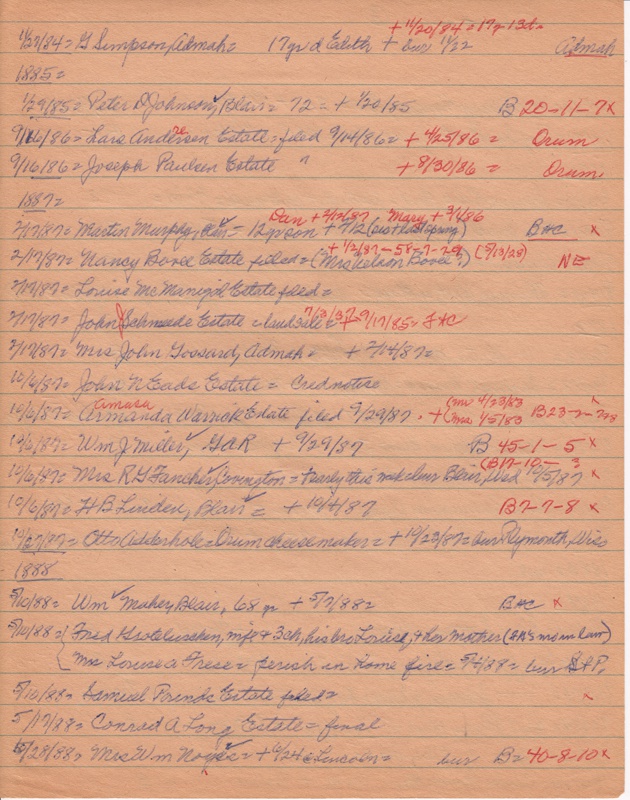 + 11/20/84 = 17y 13d =
11/27/84 = G Simpson, Admah = 17 yr d Edith + bur 11/22 Admah
1885 =
1/29/85 = Peter D Johnson, Blair = 72 = + 1/20/85 B 20-11-7 x
9/16/86 = Lars Andersen Estate = filed 9/14/86 = + 4/25/86 = Orum
9/16/86 = Joseph Paulsen Estate " + 8/30/86 = Orum
1887 =
Dan + 2/12/87 Mary + 3/1/86
2/17/87 = Martin Murphy, = 12 yr son + 2/12 (sis + last spring) B&C x
+ 1/2/87 - 58-7-29 (5/13/28)
2/17/87 = Nancy Bovee Estate filed = (Mrs Nelson Bovee?) NE
2/17/87 = Louise McManigal Estate filed =
7/3/37
2/17/87 = John J Schmeede Estate = land sale = + 9/17/85 = F & C
2/17/87 = Mrs John Gossard, Admah = + 2/14/87 =
10/6/87 = John N Eads Estate = Cred notice
amasa (mr 4/23/83 x
10/6/87 = Armanda Warrick Estate filed 9/29/87 + (mrs 1/5/83 B 23-2-7&8
10/6/87 = Wm J Miller, GAR + 9/29/87 B 45-1-5 x
(B 17-10-3
10/6/87 = Mrs R G Fancher, Covington = + early this week bur Blair, Wed 10/5/87 x
10/6/87 = H B Linden, Blair = + 10/4/87 B 7-7-8 x
10/27/87 = Otto Adderhole = Orum cheese maker = + 10/23/87 = bur Plymouth, Wisc
1888
5/10/88 = Wm Maher, Blair, 68 yr + 5/7/88 = B&C x
5/10/88 = Fred Groteluschen, wife & 3 ch, his bro Louie, & her mother (FH's mom in law)
Mrs Louisea Frese = perish in home fire = 5/4/88 = bur St P.
5/10/88 = Samuel Pounds Estate filed = x
5/17/88 = Conrad A Long Estate = final
6/28/88 = Mrs Wm Noyes = + 6/24 Lincoln = bur B = 40-8-10 x